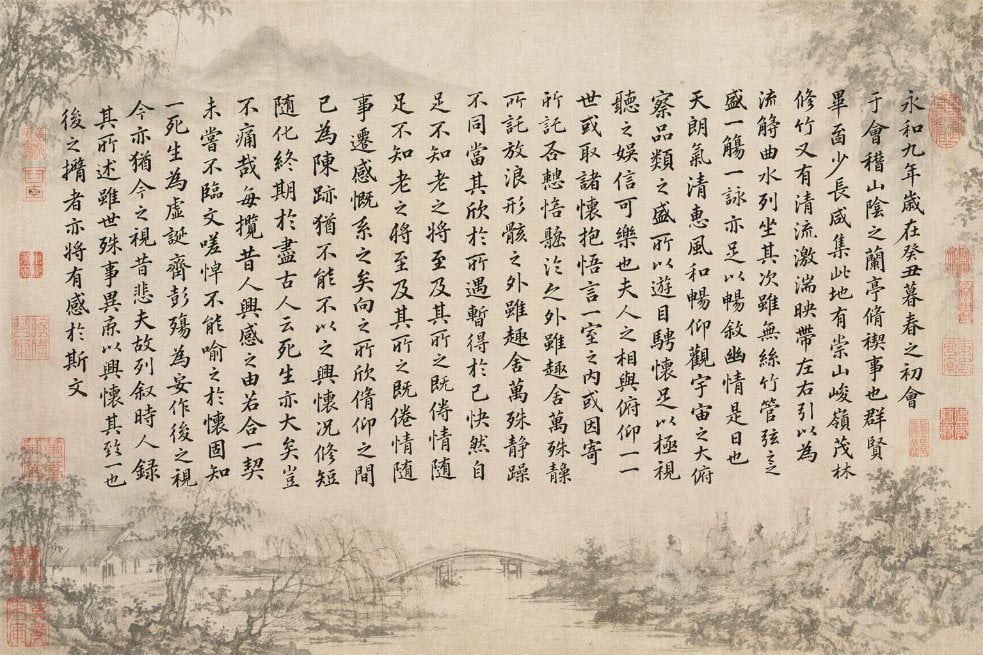 永和九年歲在癸丑暮春之初會
于會稽山陰之蘭亭脩禊事也群賢
畢面少長咸集此地有崇山峻嶺茂林
修竹又有清流激湍映帶左右引以為
流曲水列坐其次雖無絲竹管弦之
盛一觴一詠亦足以暢敘幽情是日也
天朗氣清惠風和暢仰觀宇宙之大俯
察品類之盛所以遊目騁懷足以極視
聽之娛信可樂也夫人之相與俯仰一一
世或取諸懷抱悟言一室之內或因寄
所託悟之外雖趣舍萬殊靜
所託放浪形骸之外雖趣舍萬殊靜躁
不同當其欣於所遇暫得於己快然自
足不知老之將至及其所之既倦情隨
足不知老之將至及其所之既倦情隨
事遷感慨系之矣向之所欣脩仰之間
已為陳跡猶不能不以之興懷況修短
隨化終期於盡古人云死生亦大矣豈
不痛哉每攬昔人興感之由若合一契
未嘗不臨文嗟悼不能喻之於懷固知
一死生為虛誕齊彭殤為妄作後之視
今亦猶今之視昔悲夫故列叙時人錄
其所述雖世殊事異以興懷其一也
後之者亦將有感於斯文